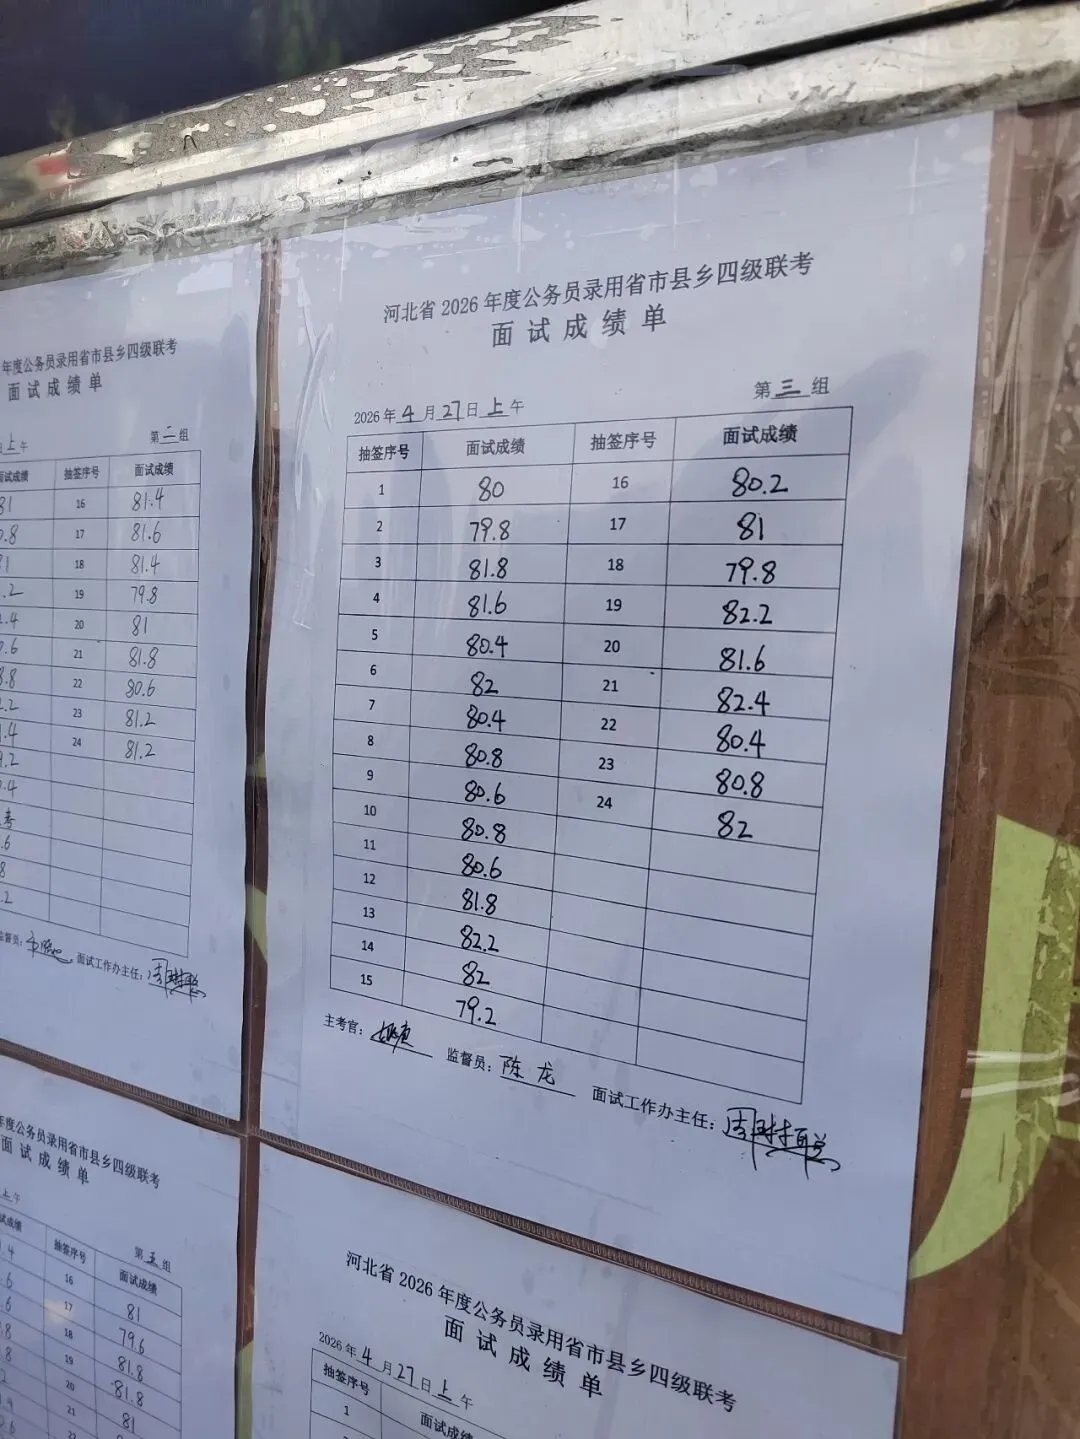 河北省 2026 年度公务员录用省市县乡四级联考
面 试 成 绩 单
2026 年 4 月 27 日 上 午 第 三 组
抽签序号 面试成绩 抽签序号 面试成绩
1 80 16 80.2
2 79.8 17 81
3 81.8 18 79.8
4 81.6 19 82.2
5 80.4 20 81.6
6 82 21 82.4
7 80.4 22 80.4
8 80.8 23 80.8
9 80.6 24 82
10 80.8
11 80.6
12 81.8
13 82.2
14 82
15 79.2
主考官： 监督员：陈龙 面试工作办主任：
年度公务员录用省市县乡四级联考
面 试 成 绩 单
上 午 第 二 组
试成绩 抽签序号 面试成绩
81 16 81.4
0.8 17 81.6
18 81.4
.2 19 79.8
.4 20 81
.6 21 81.8
.8 22 80.6
.2 23 81.2
.4 24 81.2
.2
.4
考
.6
8
.2
监督员： 面试工作办主任：
年度公务员录用省市县乡四级联考
面 试 成 绩 单
上 午
第 五 组
试成绩 抽签序号 面试成绩
.4 16 81
.6 17 79.6
.6 18 81.8
.8 19 81.8
.8 20 81
21
河北省 2026 年度公务员录用省市县乡四级联考
面 试 成 绩 单
2026 年 4 月 27 日 上 午
抽签序号 面试成绩
1